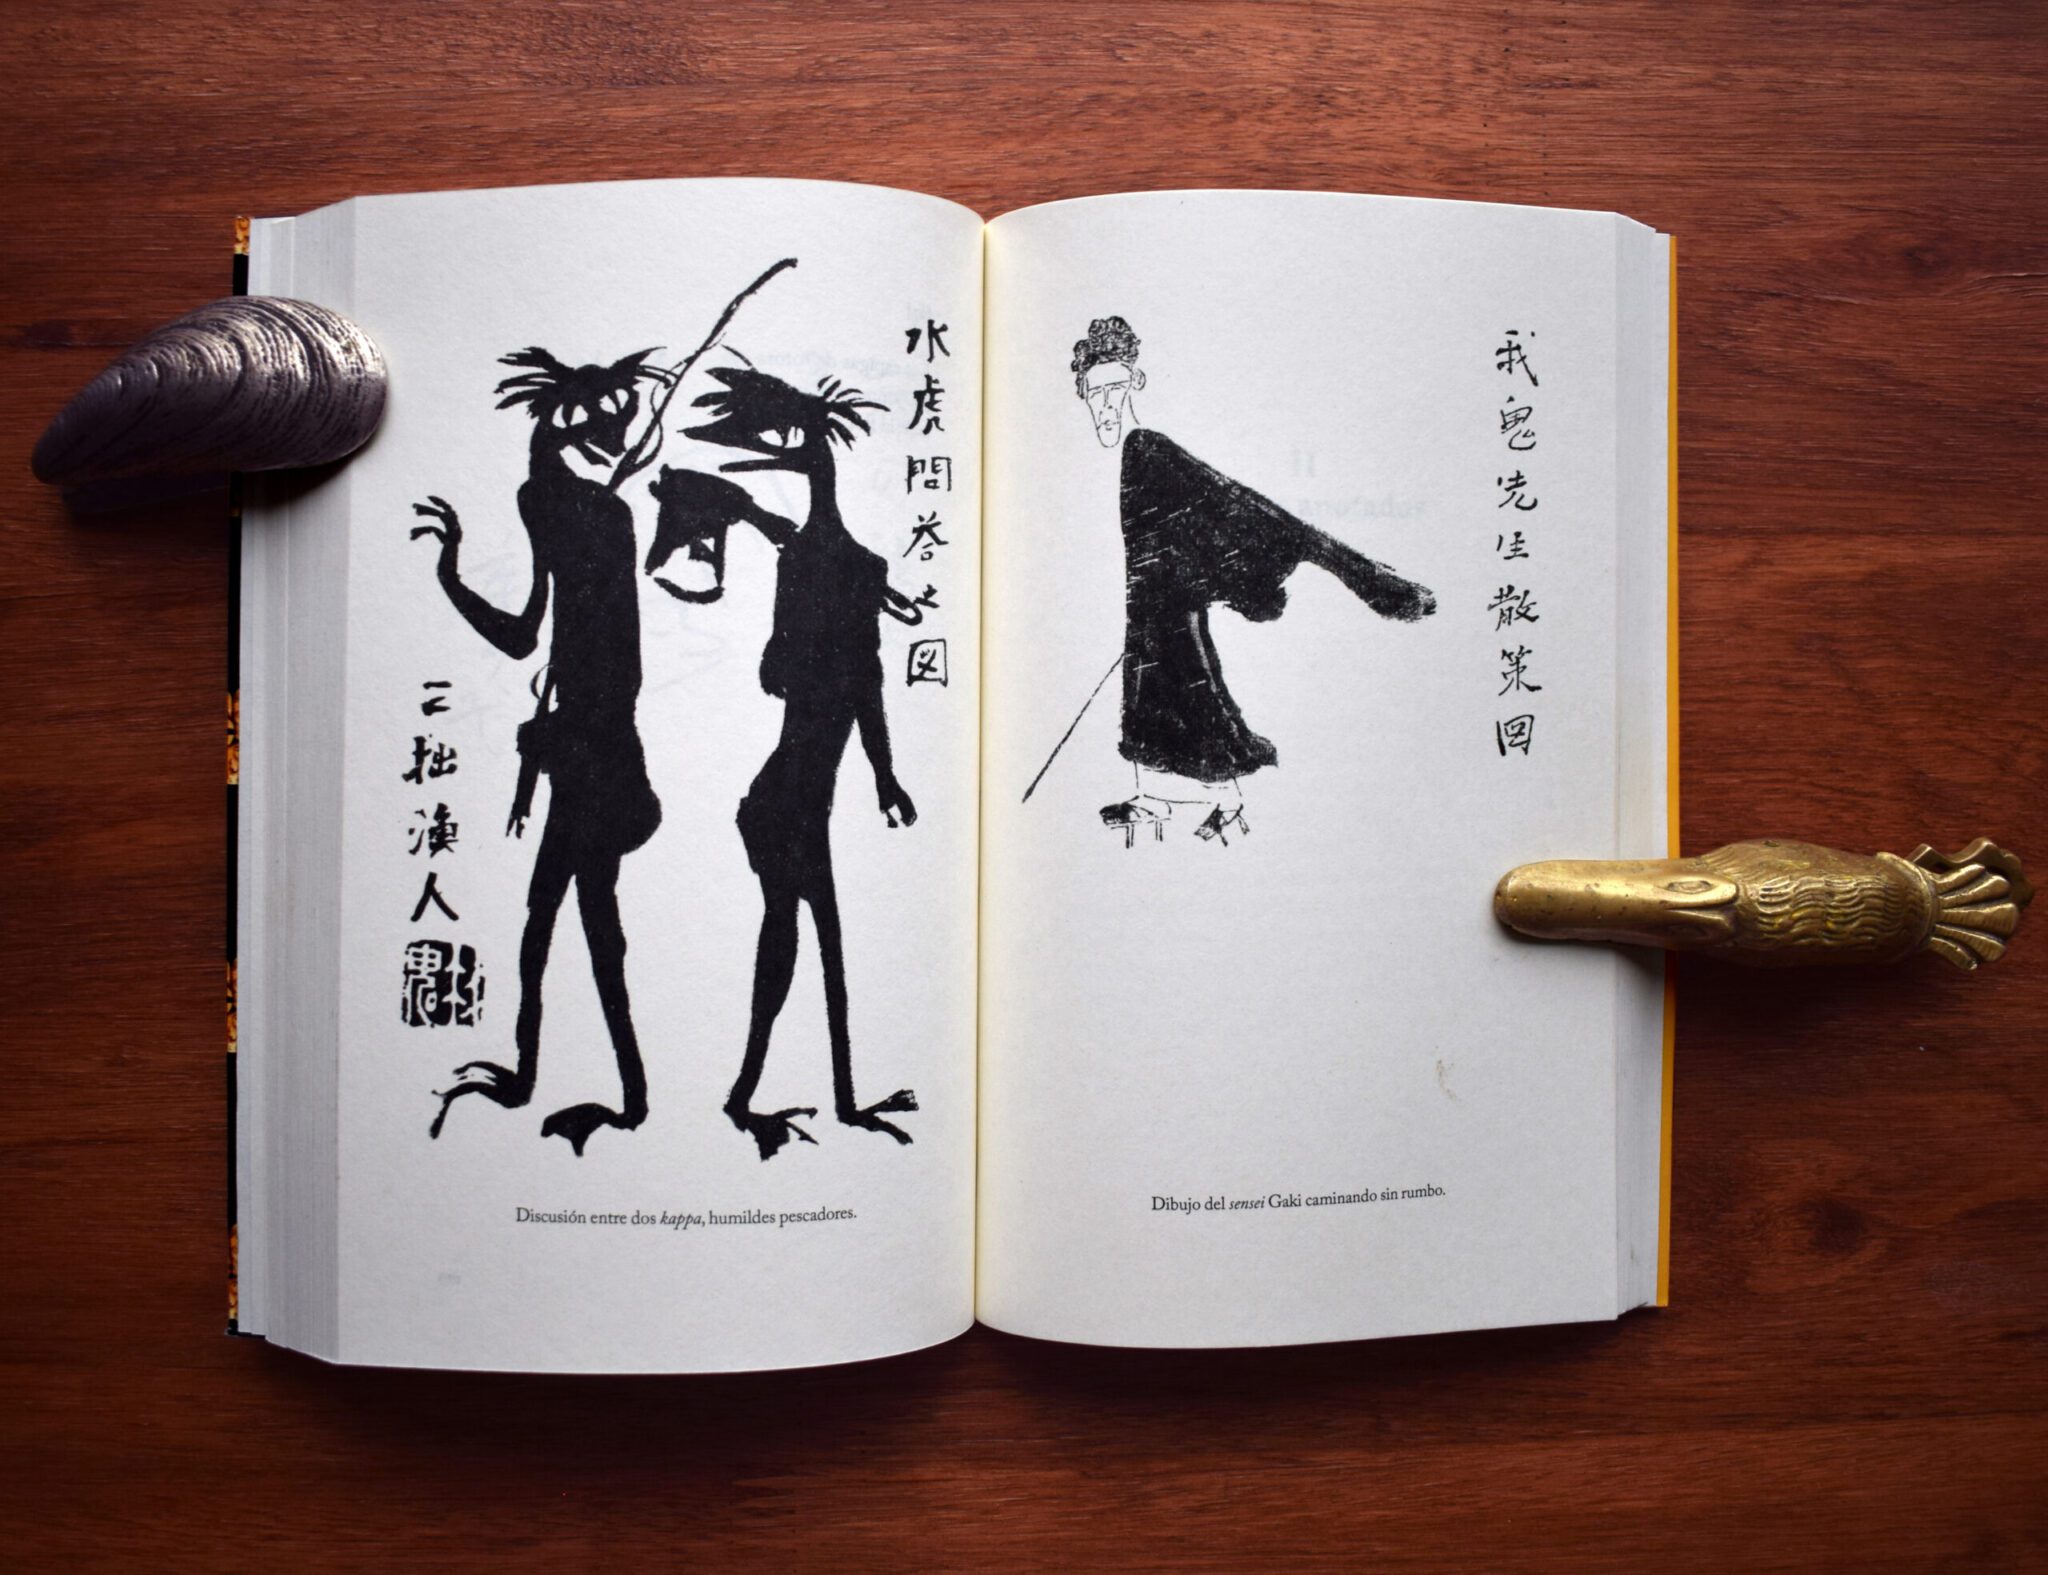 水虎問答之図
三拙漁人
Discusión entre dos kappa, humildes pescadores.
我鬼先生散策図
Dibujo del sensei Gaki caminando sin rumbo.